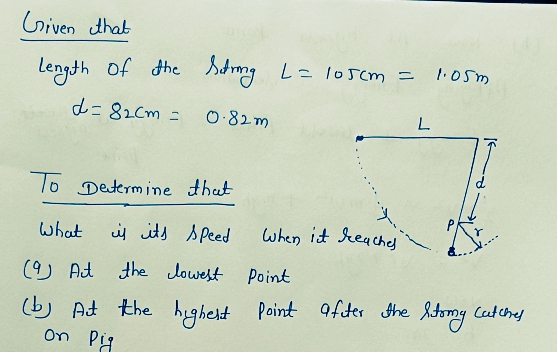 Given that
Length of the String L = 105cm = 1.05m
d = 82cm = 0.82m
L
d
P
r
To Determine that
What is its speed when it reaches
(a) At the lowest point
(b) At the highest point after the string catches
on Pig